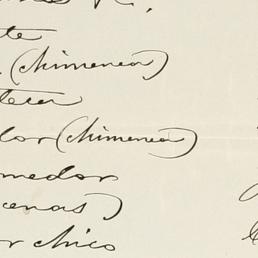 te
(chimenea)
teca
dor (chimenea)
medor
cenas)
or chico